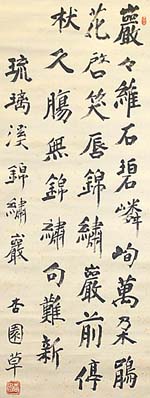 巖々石碧嶙峋萬朶鵑
花啓笑唇錦繡巖前停
杖久腸無錦繡句難新
琉璃溪錦繡巖 杏園草